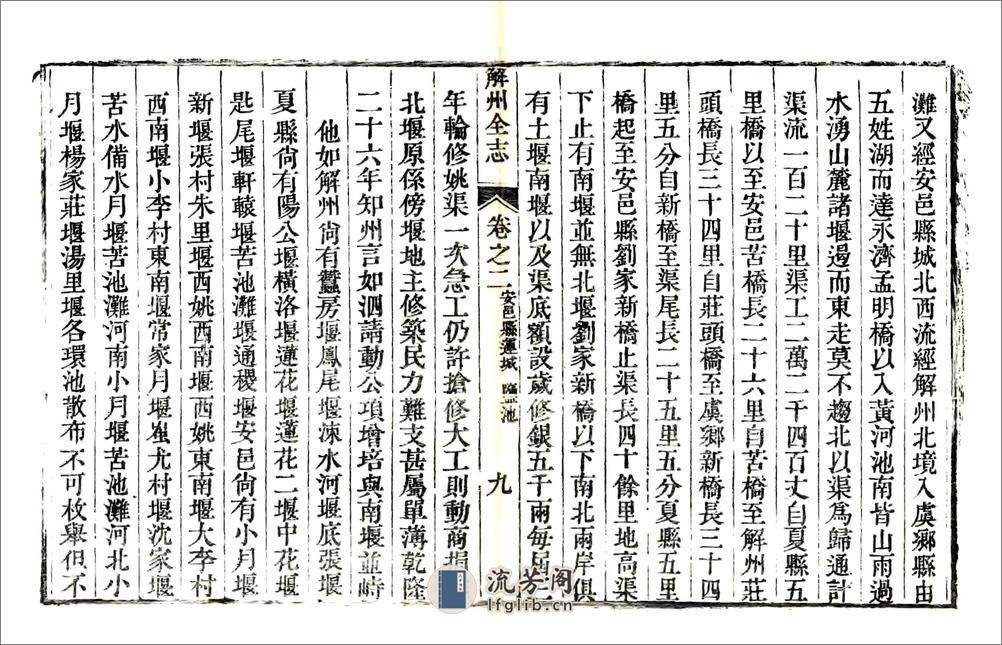 灘又經安邑縣城北西流經解州北境入虞鄉縣由
五姓湖而達永濟孟明橋以入黃河池南皆山雨過
水湧山麓諸堰遏而東走莫不趨北以渠為歸通計
渠流一百二十里渠工二萬二千四百丈自夏縣五
里橋以至安邑苦橋長二十六里自苦橋至解州莊
頭橋長三十四里自莊頭橋至虞鄉新橋長三十四
里五分自新橋至渠尾長二十五里五分夏縣五里
橋起至安邑縣劉家新橋止渠長四十餘里地高渠
下止有南堰並無北堰劉家新橋以下南北兩岸俱
有土堰南堰以及渠底額設歲修銀五千兩每屆
解州全志 卷之二 安邑縣運城 鹽池 九
年輪修姚渠一次急工仍許搶修大工則動商捐
北堰原係傍堰地主修築民力難支甚屬單薄乾隆
二十六年知州言如泗請動公項增培與南堰並峙
他如解州尚有蠶房堰鳳尾堰涑水河堰底張堰
夏縣尚有陽公堰橫洛堰蓮花堰蓮花二堰中花堰
匙尾堰軒轅堰苦池灘堰通稷堰安邑尚有小月堰
新堰張村朱里堰西姚西南堰西姚東南堰大李村
西南堰小李村東南堰常家月堰尤村堰沈家堰
苦水備水月堰苦池灘河南小月堰苦池灘河北小
月堰楊家莊堰湯里堰各環池散布不可枚舉但不
流芳阁
lfglib.cn